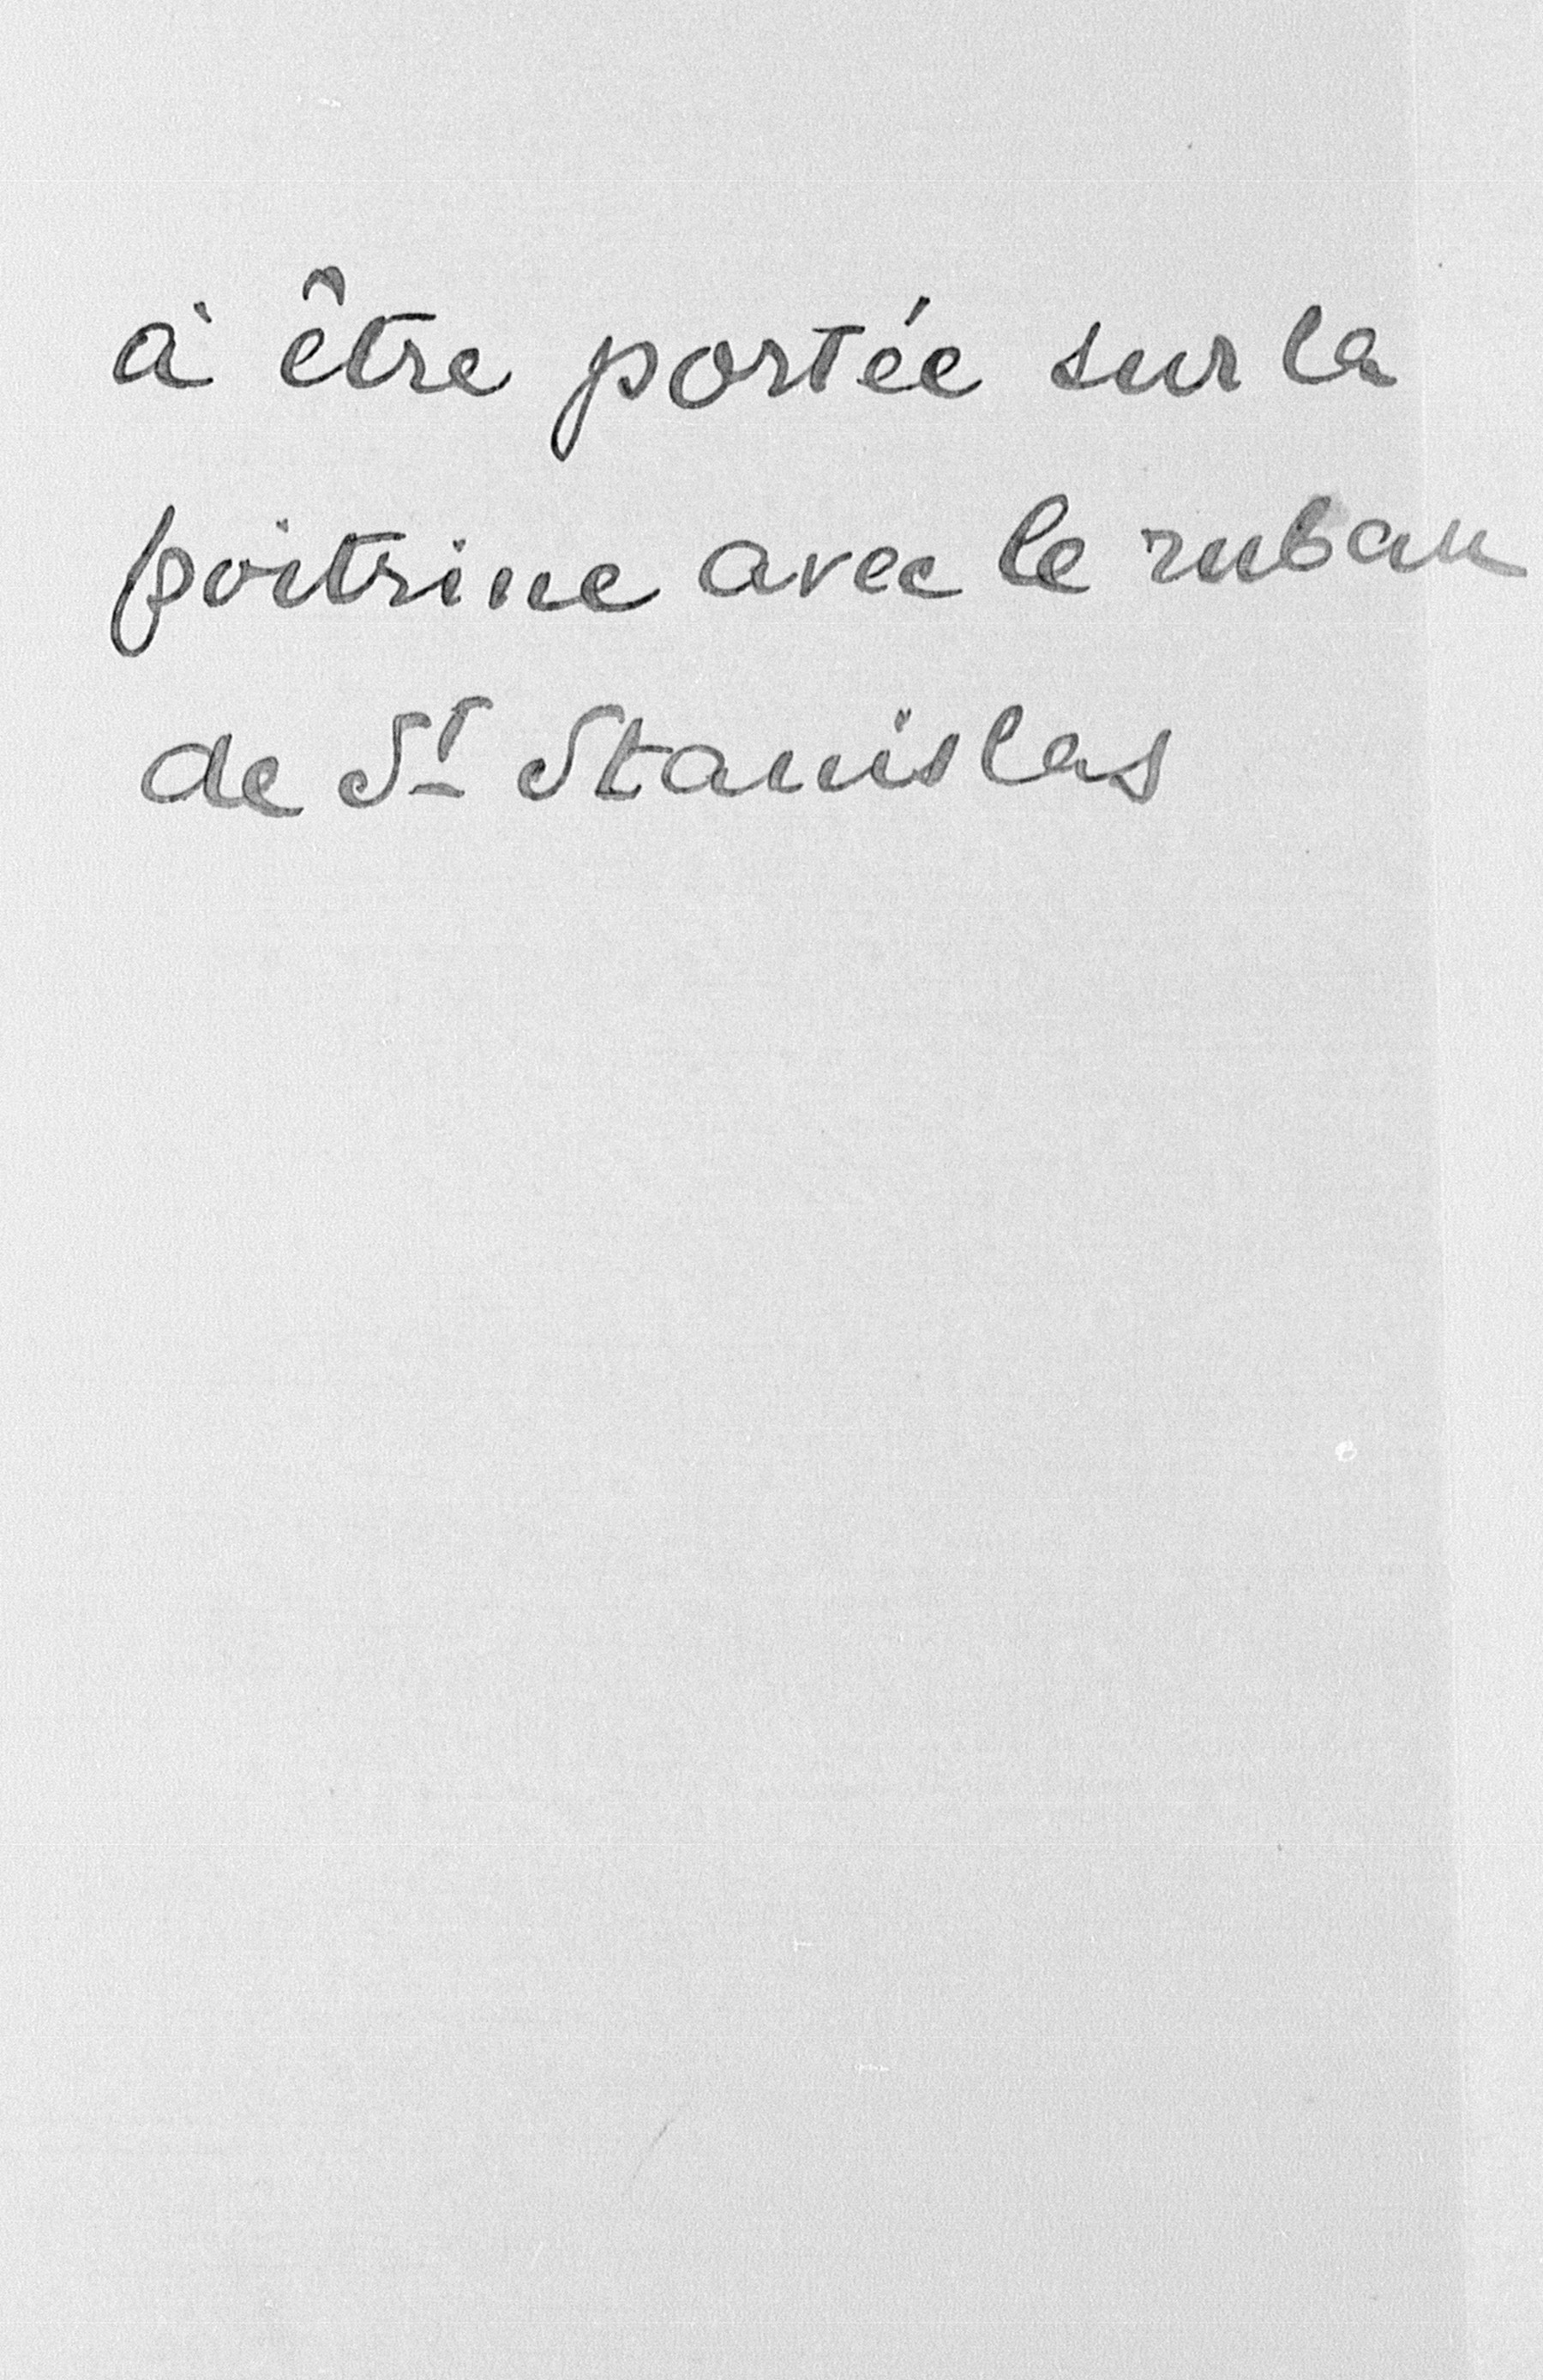 à être portée sur la
poitrine avec le ruban
de St Stanislas